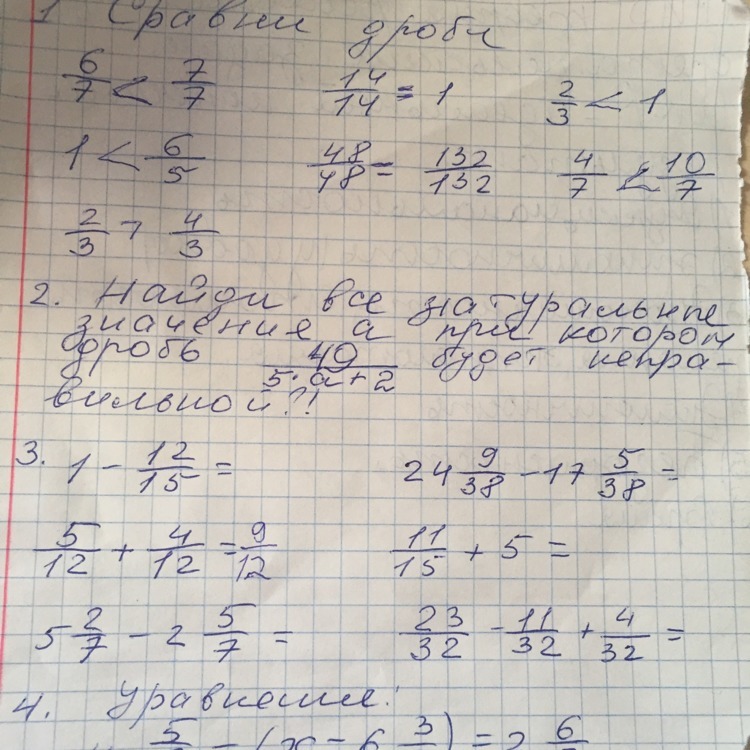 1 Сравни дроби
6/7 < 7/7 14/14 = 1 2/3 < 1
1 < 6/5 48/48 = 132/132 4/7 < 10/7
2/3 > 4/3
2. Найди все натуральные
значение а при котором
дробь 40/(5·а+2) будет непра-
вильной?!
3. 1 - 12/15 = 24 9/38 - 17 5/38 =
5/12 + 4/12 = 9/12 11/15 + 5 =
5 2/7 - 2 5/7 = 23/32 - 11/32 + 4/32 =
4. Уравнение!
5 - (x - 6 3 ) = 2 6